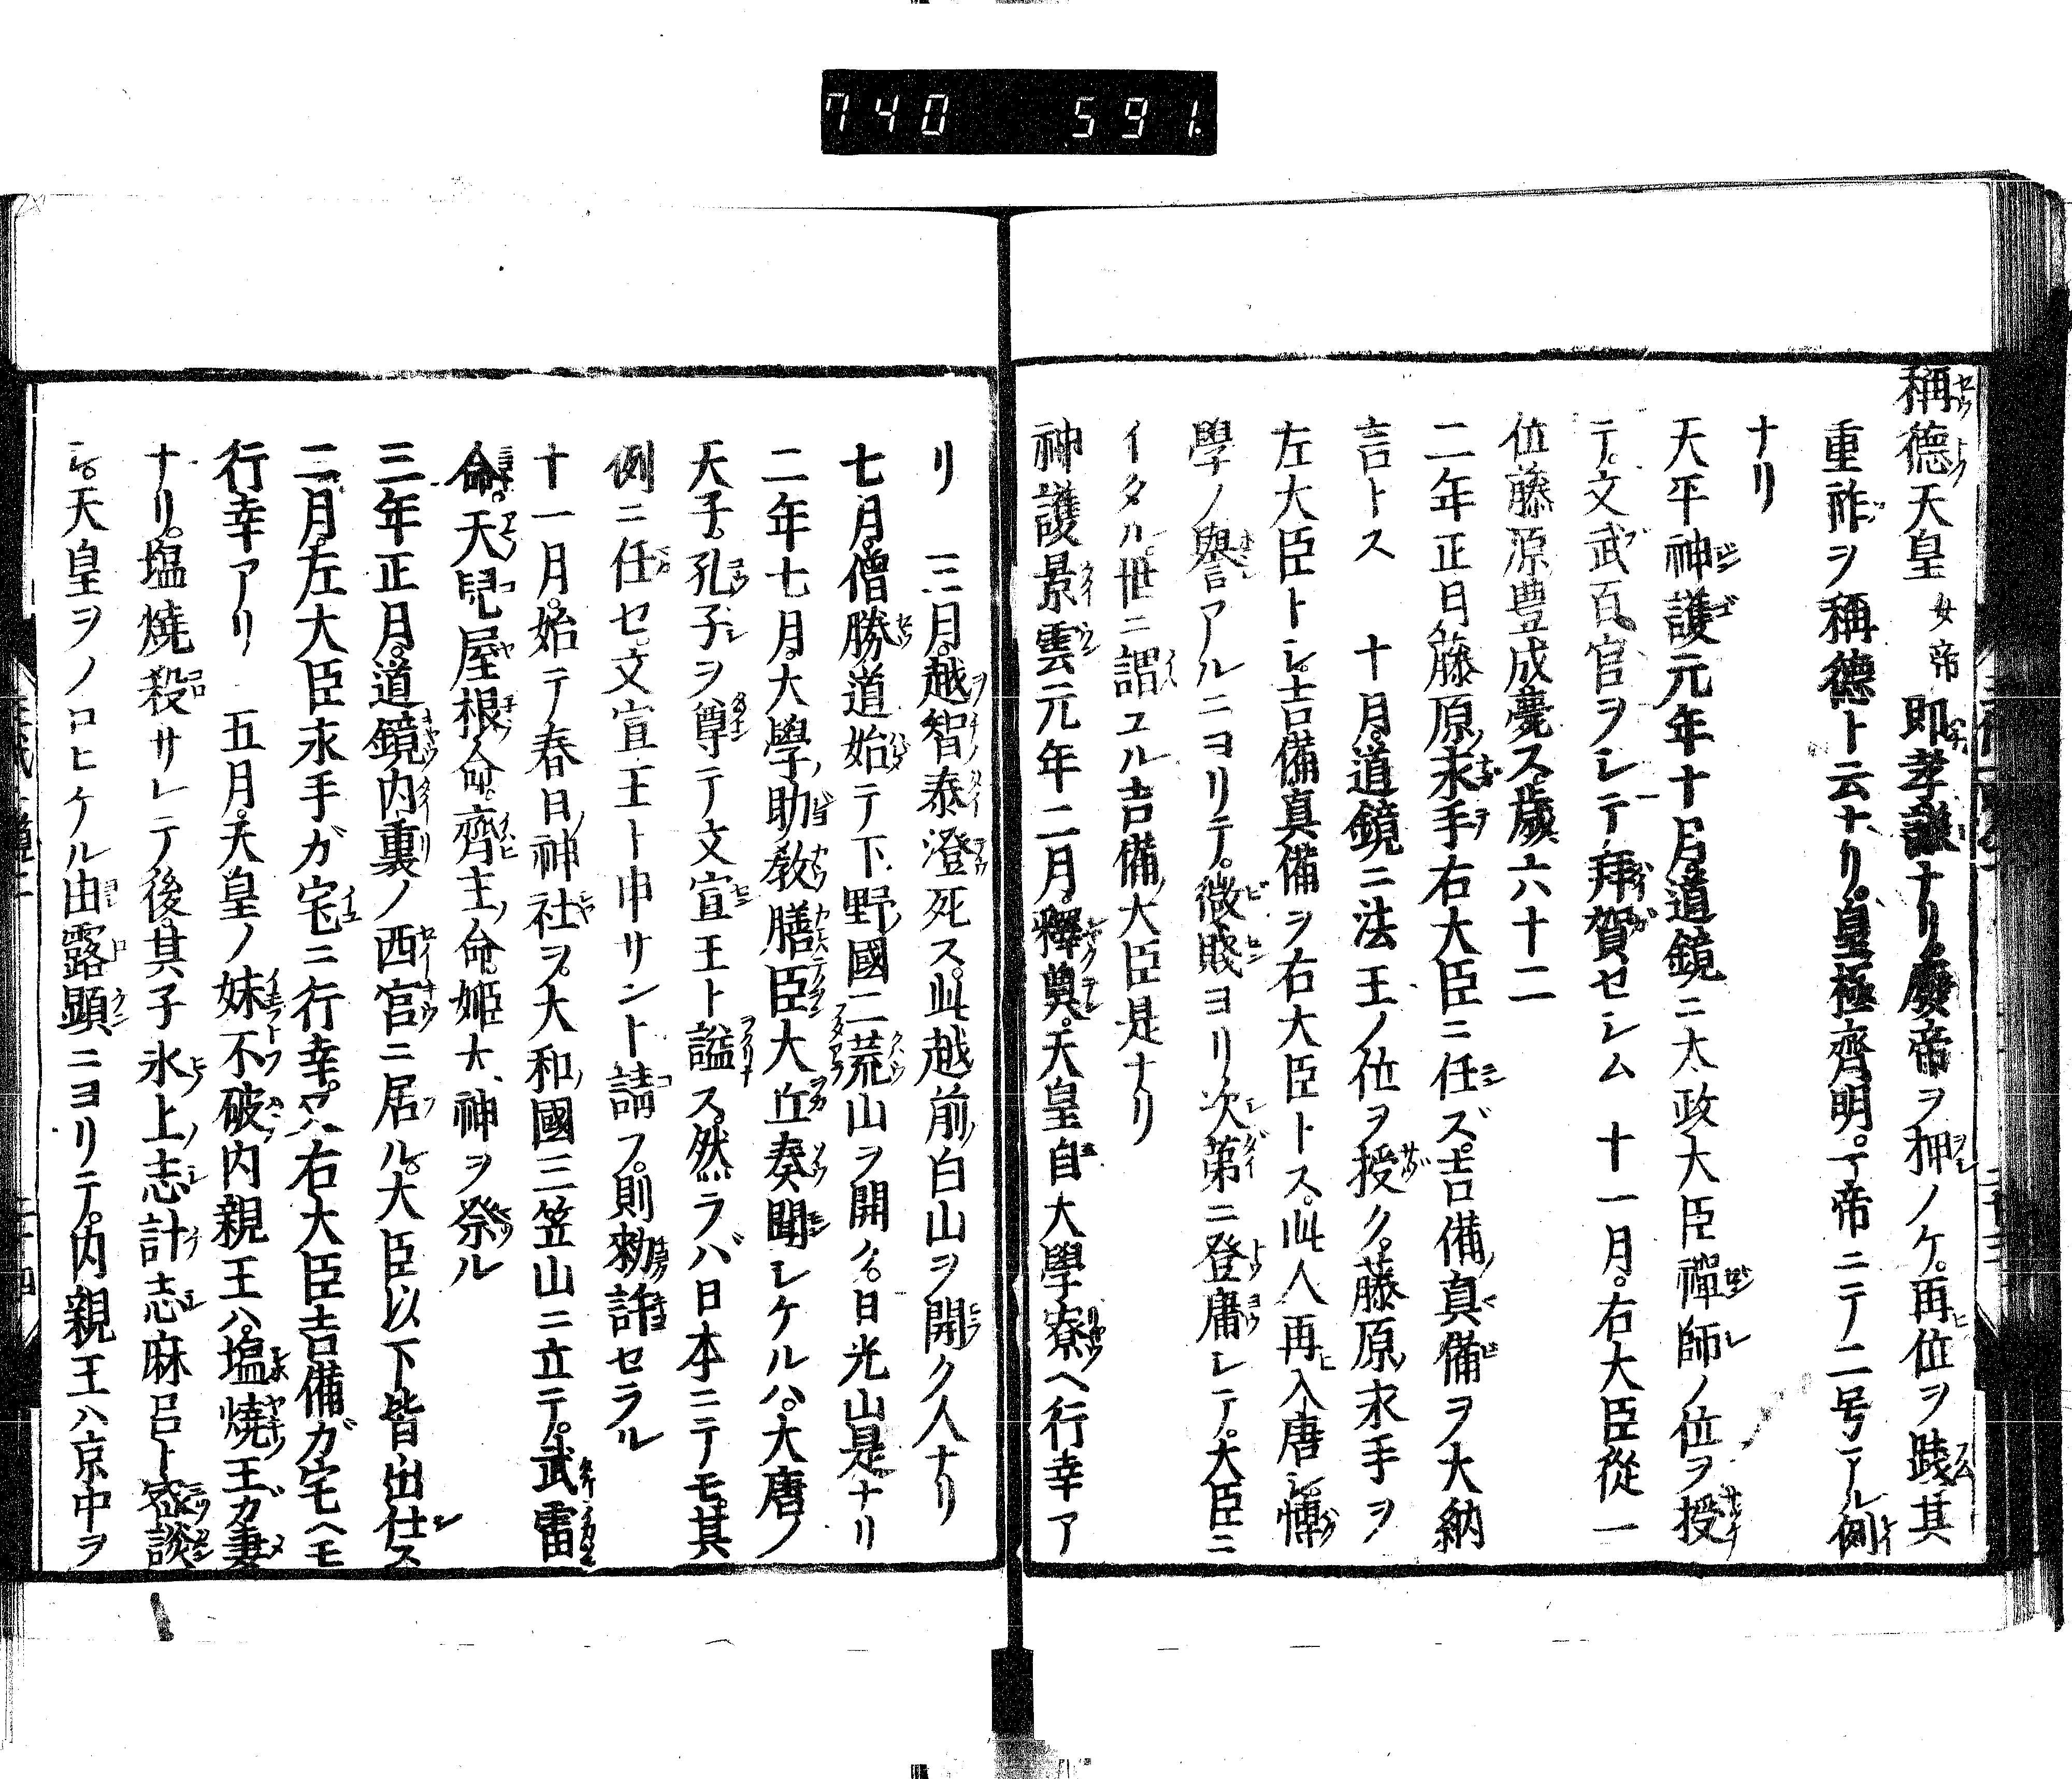 740 591
稱德天皇 女帝 即孝謙ナリ。廢帝ヲ押ノケ。再位ヲ踐其
重祚ヲ稱德ト云ナリ。皇極齊明。一帝ニテ二号アル例
ナリ
天平神護元年十月。道鏡ニ太政大臣禪師ノ位ヲ授
テ。文武百官ヲシテ拜賀セシム 十一月。右大臣從一
位藤原豊成薨ス。歳六十二
二年正月藤原永手右大臣ニ任ズ。吉備真備ヲ大納
言トス 十月。道鏡ニ法王ノ位ヲ授ク。藤原永手ヲ
左大臣トシ。吉備真備ヲ右大臣トス。此人再入唐シ。博
學ノ譽アルニヨリテ。微賤ヨリ次第ニ登庸シテ。大臣ニ
イタル。世ニ謂ユル吉備大臣是ナリ
神護景雲元年二月。釋奠。天皇自大學寮ヘ行幸ア
リ 三月。越智泰澄死ス。此越前白山ヲ開ク人ナリ
七月。僧勝道始テ下野國二荒山ヲ開ク。日光山是ナリ
二年七月。大學助教膳臣大丘奏聞シケルハ。大唐ノ
天子。孔子ヲ尊テ文宣王ト謚ス。然ラバ日本ニテモ。其
例ニ任セ。文宣王ト申サント請フ。則勅許セラル
十一月。始テ春日神社ヲ。大和國三笠山ニ立テ。武雷
命。天兒屋根命。齊主命。姬大神ヲ祭ル
三年正月。道鏡內裏ノ西宮ニ居ル。大臣以下皆出仕ス
二月。左大臣永手ガ宅ニ行幸。又右大臣吉備ガ宅ヘモ
行幸アリ 五月。天皇ノ妹不破內親王ハ。塩燒王ガ妻
ナリ。塩燒殺サレテ後其子氷上志計志麻呂ト密談
シ。天皇ヲノロヒケル由露顕ニヨリテ。內親王ハ京中ヲ